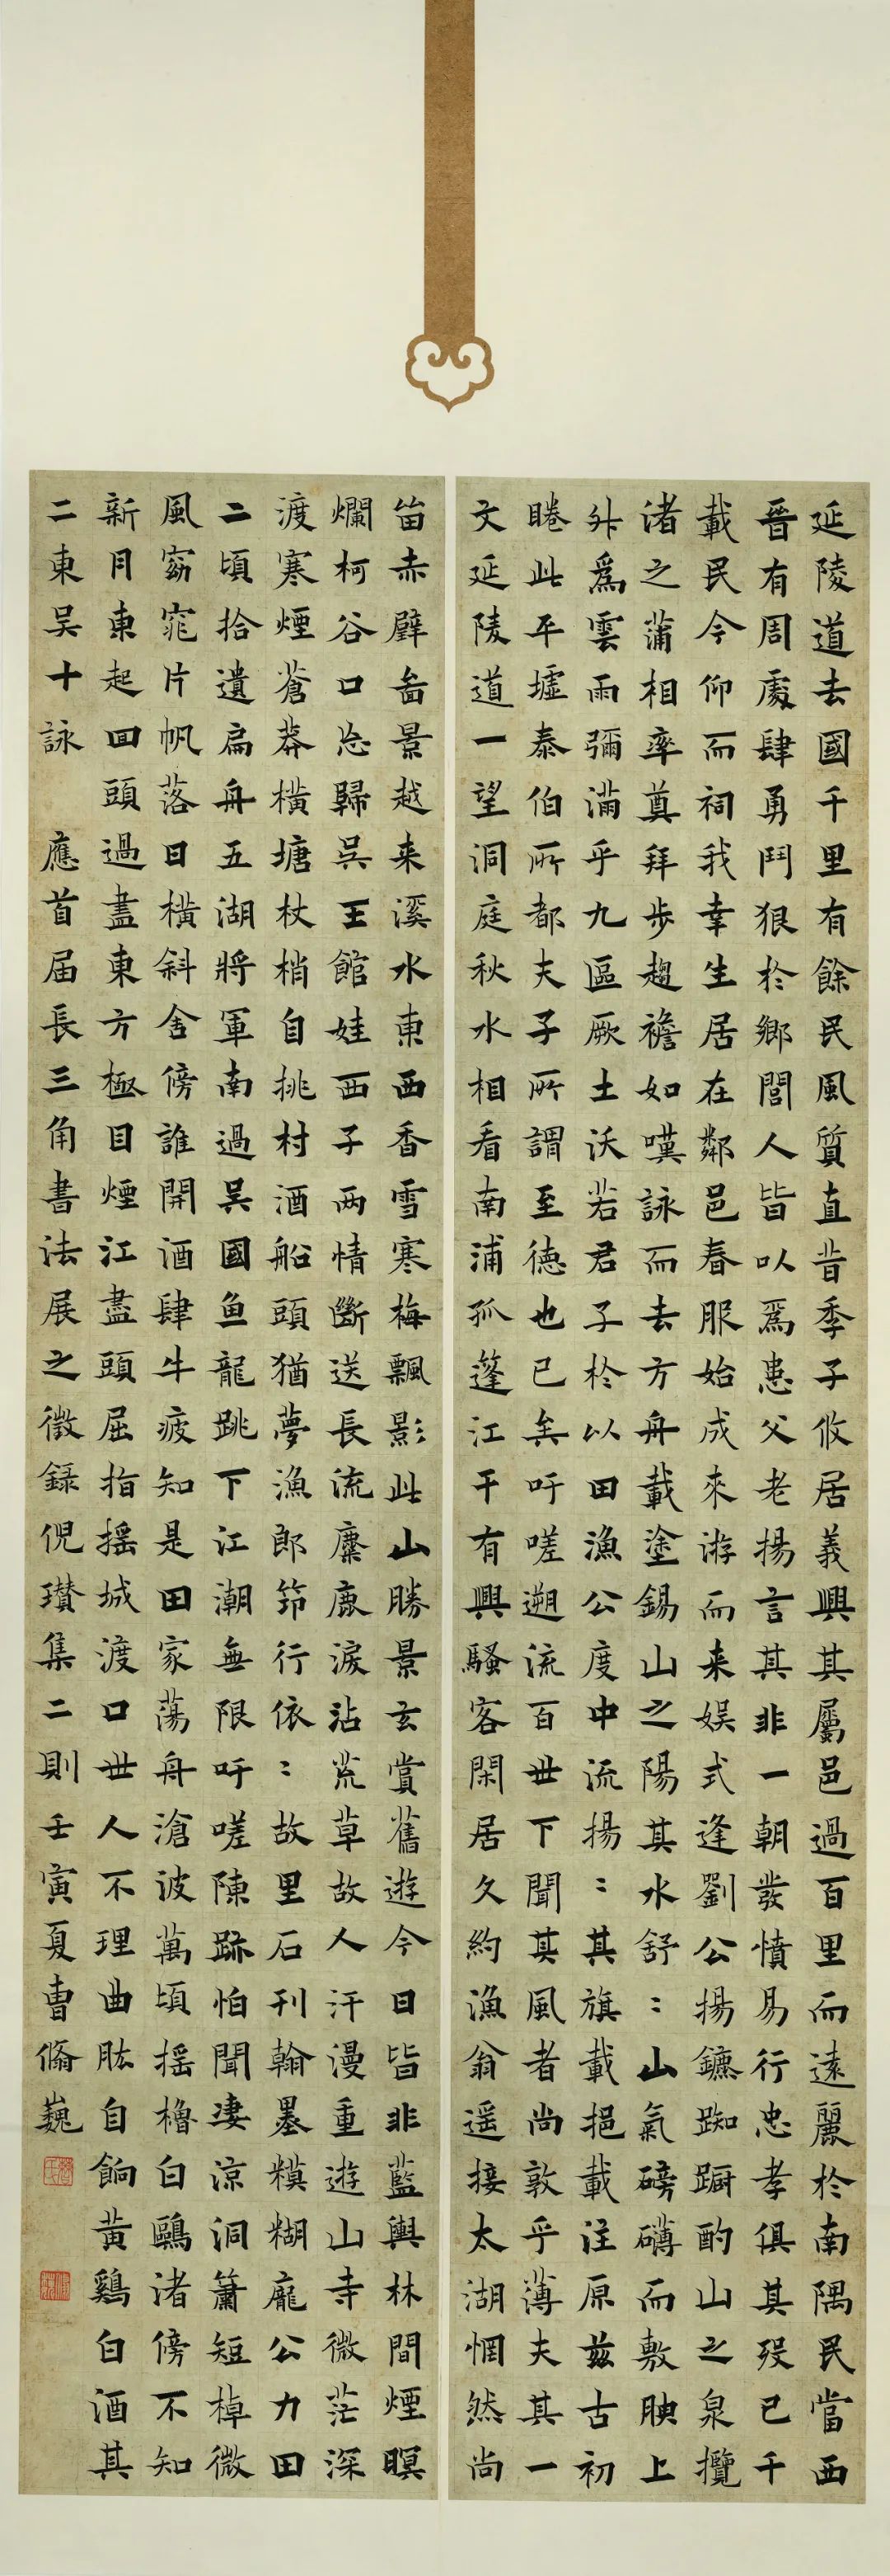 延陵道去國千里有餘民風質直昔季子攸居義興其屬邑過百里而遠麗於南隅民當西
晉有周處肆勇鬥狠於鄉閭人皆以爲患父老揚言其非一朝發憤易行忠孝俱其歿已千
載民今仰而祠我幸生居在鄰邑春服始成來游而来娱式逢劉公揚鑣踟蹰酌山之泉攬
渚之蒲相率奠拜步趨襜如嘆詠而去方舟載塗錫山之陽其水舒〻山氣磅礴而敷腴上
升爲雲雨彌滿乎九區厥土沃若君子於以田漁公度中流揚〻其旗載挹載注原兹古初
睠此平墟泰伯所都夫子所謂至德也已矣吁嗟遡流百世下聞其風者尚敦乎薄夫其一
文延陵道一望洞庭秋水相看南浦孤蓬江干有興騷客閑居久約漁翁遥接太湖惘然尚
笛赤壁嵒景越来溪水東西香雪寒梅飄影此山勝景玄賞舊遊今日皆非藍輿林間煙暝
爛柯谷口忘歸吳王館娃西子两情斷送長流麋鹿淚沾荒草故人汗漫重遊山寺微茫深
渡寒煙蒼莽橫塘杖梢自挑村酒船頭猶夢漁郎節行依〻故里石刊翰墨糢糊龐公力田
二頃拾遺扁舟五湖將軍南過吳國鱼龍跳下江潮無限吁嗟陳跡怕聞凄涼洞簫短棹微
風窈窕片帆落日橫斜舍傍誰開酒肆牛疲知是田家蕩舟滄波萬頃摇櫓白鷗渚傍不知
新月東起回頭過盡東方極目煙江盡頭屈指摇城渡口世人不理曲肱自餉黄鷄白酒其
二東吴十詠 應首届長三角書法展之徵録倪瓚集二則壬寅夏曹脩巍